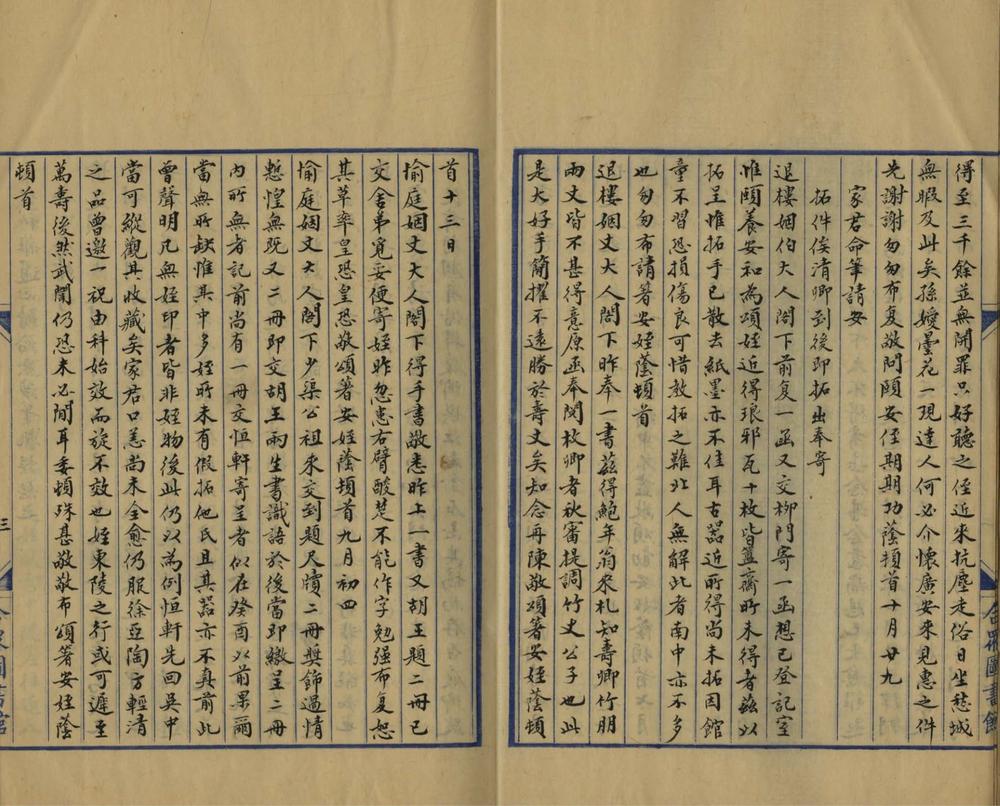 得至三千餘並無開罪只好聽之侄近來抗塵走俗日坐愁城
無暇及此矣孫嬡曇花一現達人何必介懷廣安來見惠之件
先謝謝匆匆布复敬問頤安侄期期功蔭頓首十月廿九
家君命筆請安
拓件俟清卿到後即拓出奉寄
退樓姻伯大人閣下前复一函又交柳門寄一函想已登記室
惟頤養安和為頌姪近得琅邪瓦十枚皆簠齋所未得者茲以
拓呈惟拓手已散去紙墨亦不佳耳古器近所得尚未拓因館
童不習恐損傷良可惜教拓之難北人無解此者南中亦不多
也匆匆布請著安姪蔭頓首
退樓姻丈大人閣下昨奉一書茲得鮑年翁來札知壽卿竹朋
兩丈皆不甚得意原函奉閱枚卿者秋審提調竹丈公子也此
是大好手簡擢不遠勝於壽丈矣知念再陳敬頌著安姪蔭頓
首十三日
愉庭姻丈大人閣下得手書敬悉昨上一書又胡王題二冊已
交舍弟覓妥便寄姪昨忽患右臂酸楚不能作字勉強布复恕
其草率皇恐皇恐敬頌著安姪蔭頓首九月初四
愉庭姻丈大人閣下少渠公祖來交到題尺牘二冊獎飾過情
慙惶無既又二冊即交胡王兩生書識語於後當即繳呈二冊
內所無者記前尚有一冊交恒軒寄呈者似在癸酉以前果爾
當無所缺惟其中多姪所未有假拓他氏且其器亦不真前此
曾聲明凡無姪印者皆非姪物後此仍以為例恒軒先回吳中
當可縱觀其收藏矣家君口恙尚未全愈仍服徐亞陶方輕清
之品曾邀一祝由科始效而旋不效也姪東陵之行或可遲至
萬壽後然武闈仍恐未必閒耳委頓殊甚敬敬布頌著安姪蔭
頓首
三
合眾圖書館